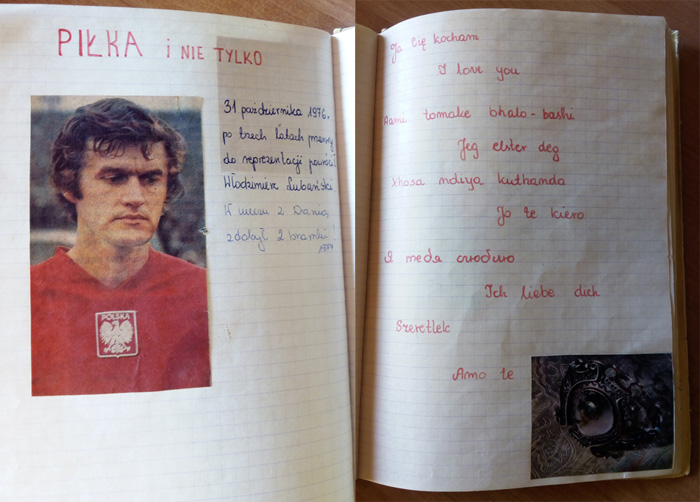 PIŁKA i NIE TYLKO
31 października 1976.
po trzech latach przerwy
do reprezentacji powrócił
Włodzimierz Lubański
W meczu z Danią
zdobył 2 bramki!
1977
POLSKA
Ja Cię kocham
I love you
Aami tomake bhalo-bashi
Jeg elster deg
Xhosa ndiya kuthanda
Jo te kiero
Szeretlek
Ich liebe dich
Amo te